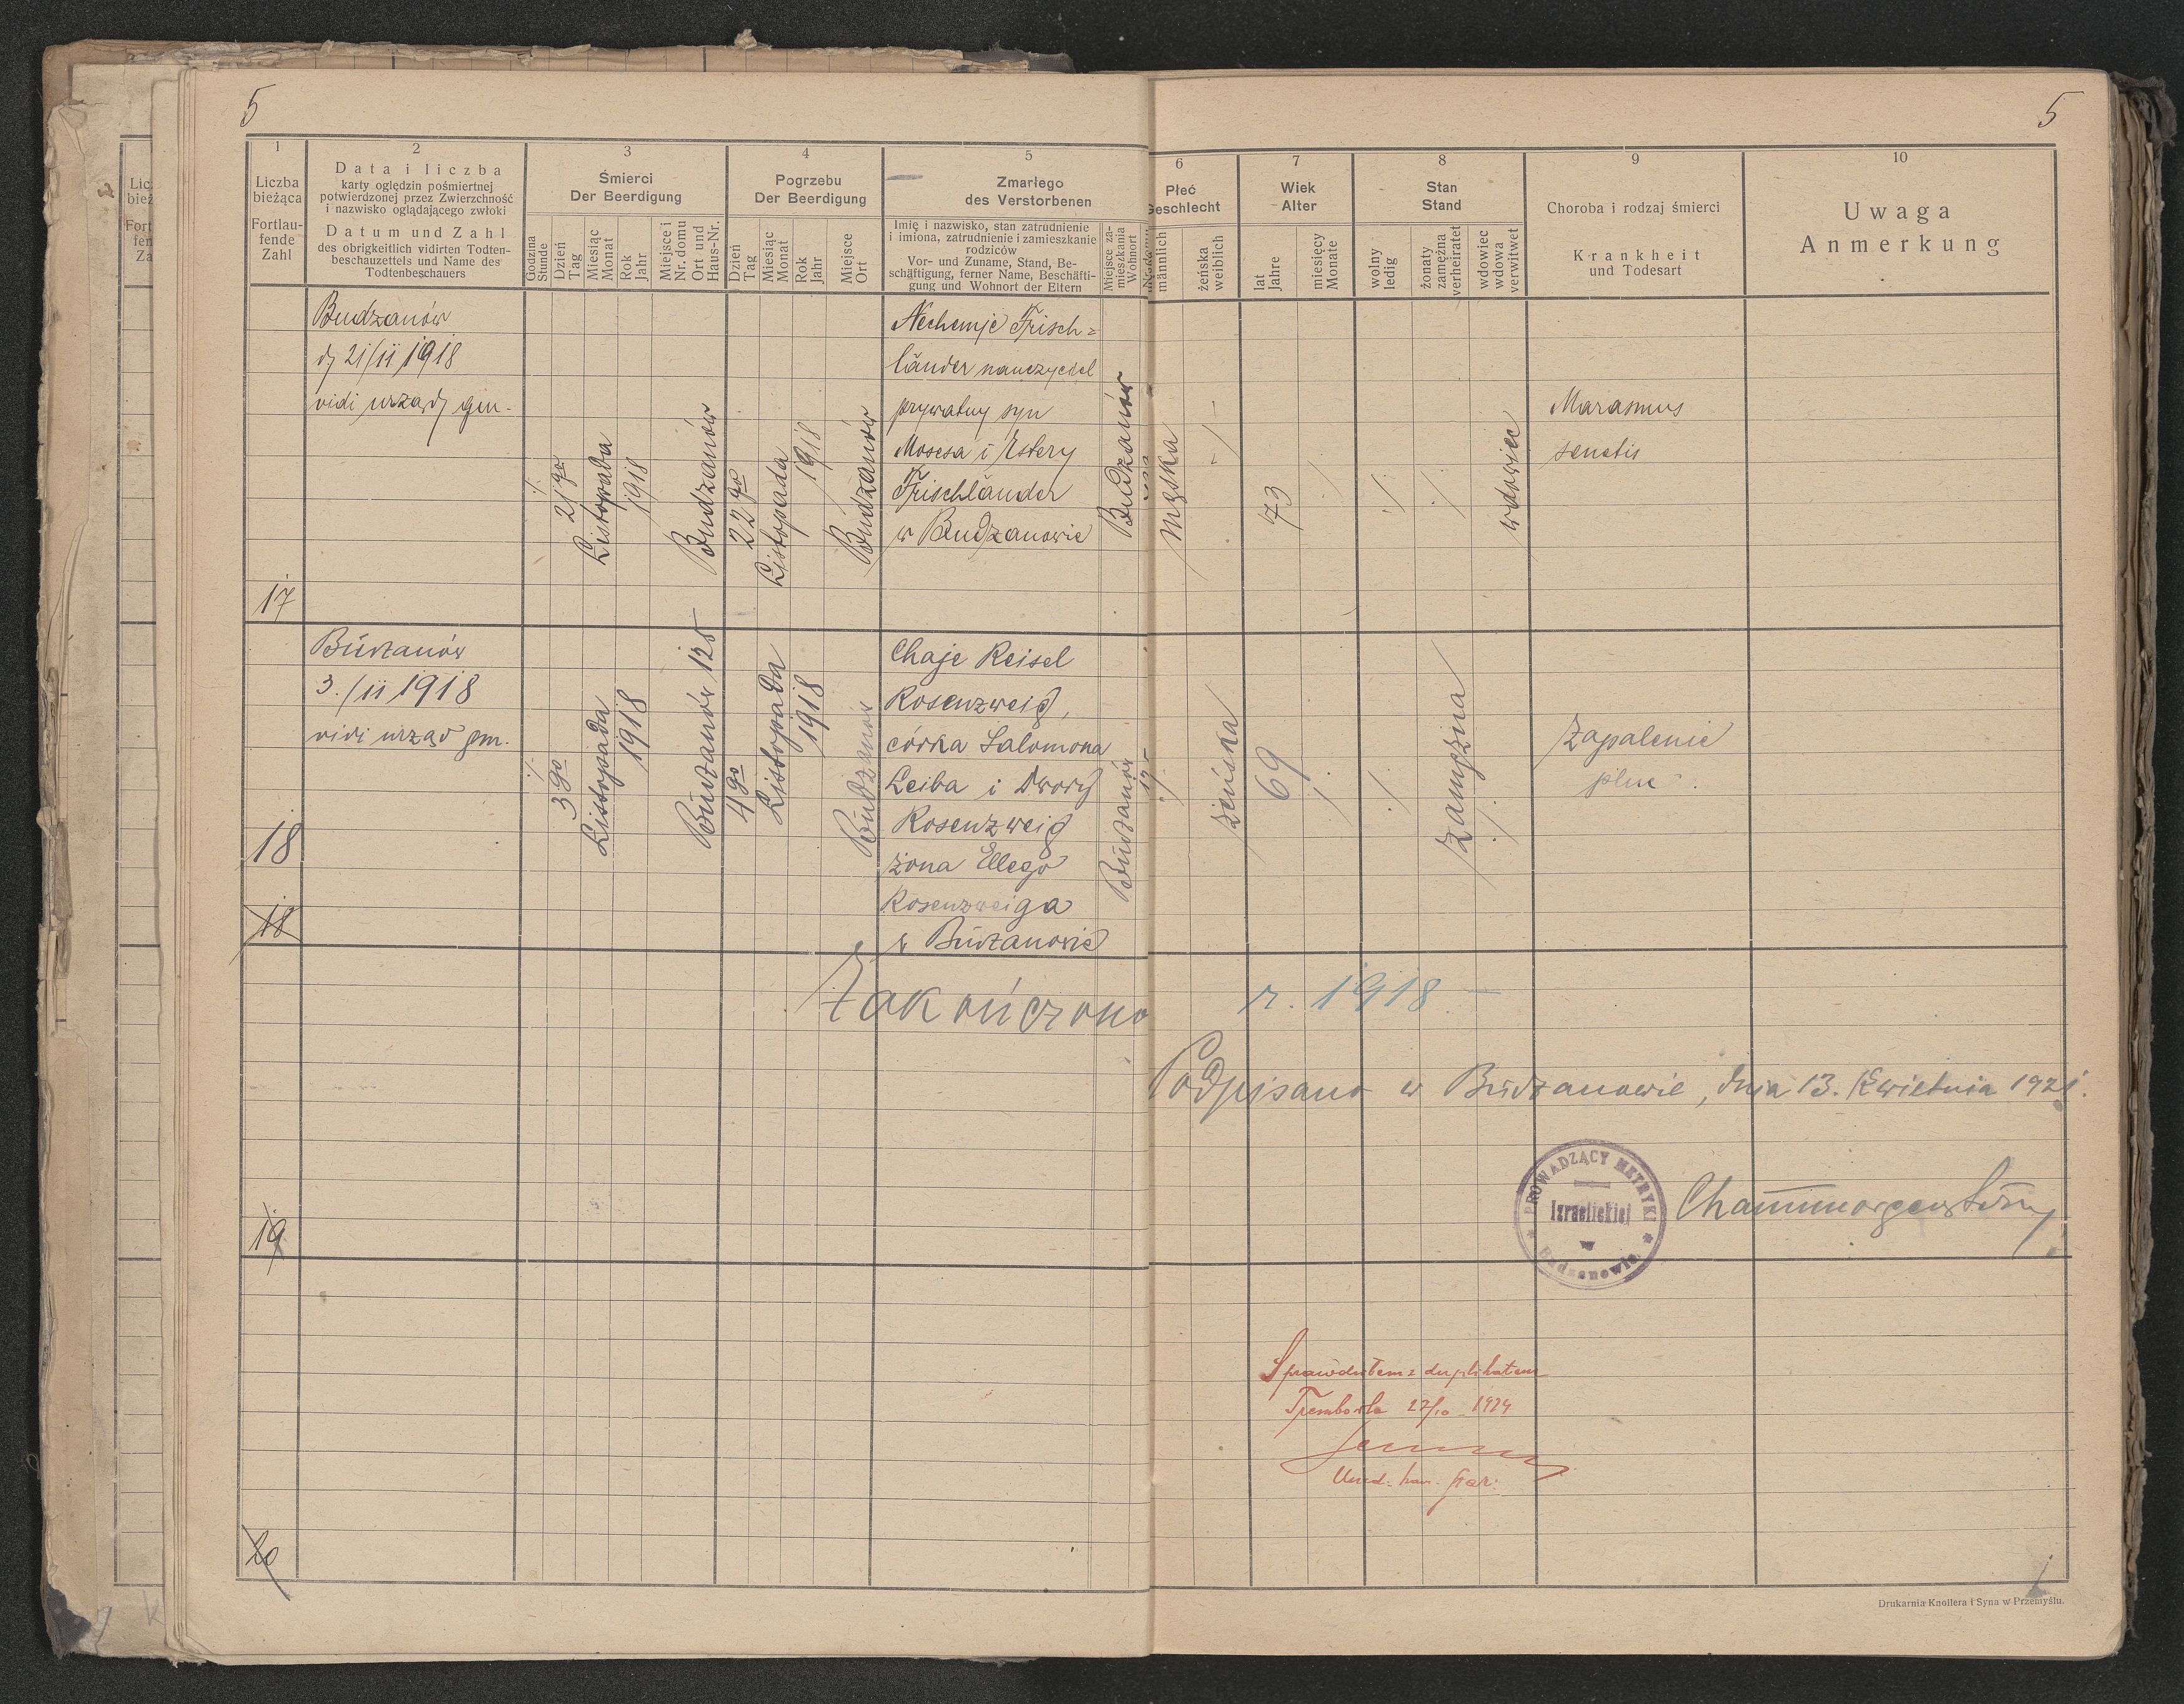 5
5
1
Liczba
bieżąca
Fortlau-
fende
Zahl
2
Data i liczba
karty oględzin pośmiertnej
potwierdzonej przez Zwierzchność
i nazwisko oglądającego zwłoki
Datum und Zahl
des obrigkeitlich vidirten Todten-
beschauzettels und Name des
Todtenbeschauers
3
Śmierci
Der Beerdigung
Godzina
Stunde
Dzień
Tag
Miesiąc
Monat
Rok
Jahr
Miejsce i
Nr. domu
Ort und
Haus-Nr.
4
Pogrzebu
Der Beerdigung
Dzień
Tag
Miesiąc
Monat
Rok
Jahr
Miejsce
Ort
5
Zmarłego
des Verstorbenen
Imię i nazwisko, stan zatrudnienie
i imiona, zatrudnienie i zamieszkanie
rodziców
Vor- und Zuname, Stand, Be-
schäftigung, ferner Name, Beschäfti-
gung und Wohnort der Eltern
Miejsce za-
mieszkania
Wohnort
6
Płeć
Geschlecht
männlich
żeńska
weiblich
7
Wiek
Alter
lat
Jahre
miesięcy
Monate
8
Stan
Stand
wolny
ledig
żonaty
zamężna
verheiratet
wdowiec
wdowa
verwitwet
9
Choroba i rodzaj śmierci
Krankheit
und Todesart
10
Uwaga
Anmerkung
17
Budzanów
dj 21/11 1918
vidi urządj gm.
21go
Listopada
1918
Budzanów
22go
Listopada
1918
Budzanów
Nechemje Frisch=
länder nauczyciel
prywatny syn
Mosesa i Estery
Frischländer
w Budzanowie
Budzanów
męska
73
wdowiec
Marasmus
senetis
18
18
Budzanów
3./11 1918
vidi urząd gm.
3go
Listopada
1918
Budzanów 125
4go
Listopada
1918
Budzanów
Chaje Reisel
Rosenzweig,
córka Salomona
Leiba i Dwory
Rosenzweig
żona Ellego
Rosenzweiga
w Budzanowie
Budzanów
żeńska
69
zamężna
Zapalenie
płuc
Zakończono r. 1918 –
Podpisano w Budzanowie, dnia 13. Kwietnia 1921.
PROWADZĄCY METRYKI
Izraelickiej
w
Budzanowie
19
Sprawdziłem z duplikatem
Trembowla 27/10 1924
20
Drukarnia Knollera i Syna w Przemyślu.